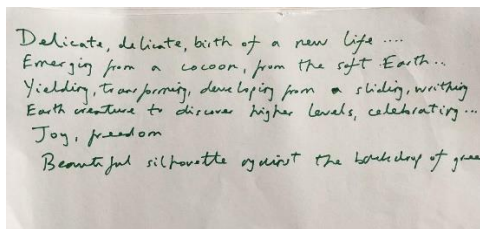 Delicate, delicate, birth of a new life ....
Emerging from a cocoon, from the soft Earth...
Yielding, transforming, developing from a sliding, writhing
Earth creature to discover higher levels, celebrating...
Joy, freedom
Beautiful silhouette against the backdrop of